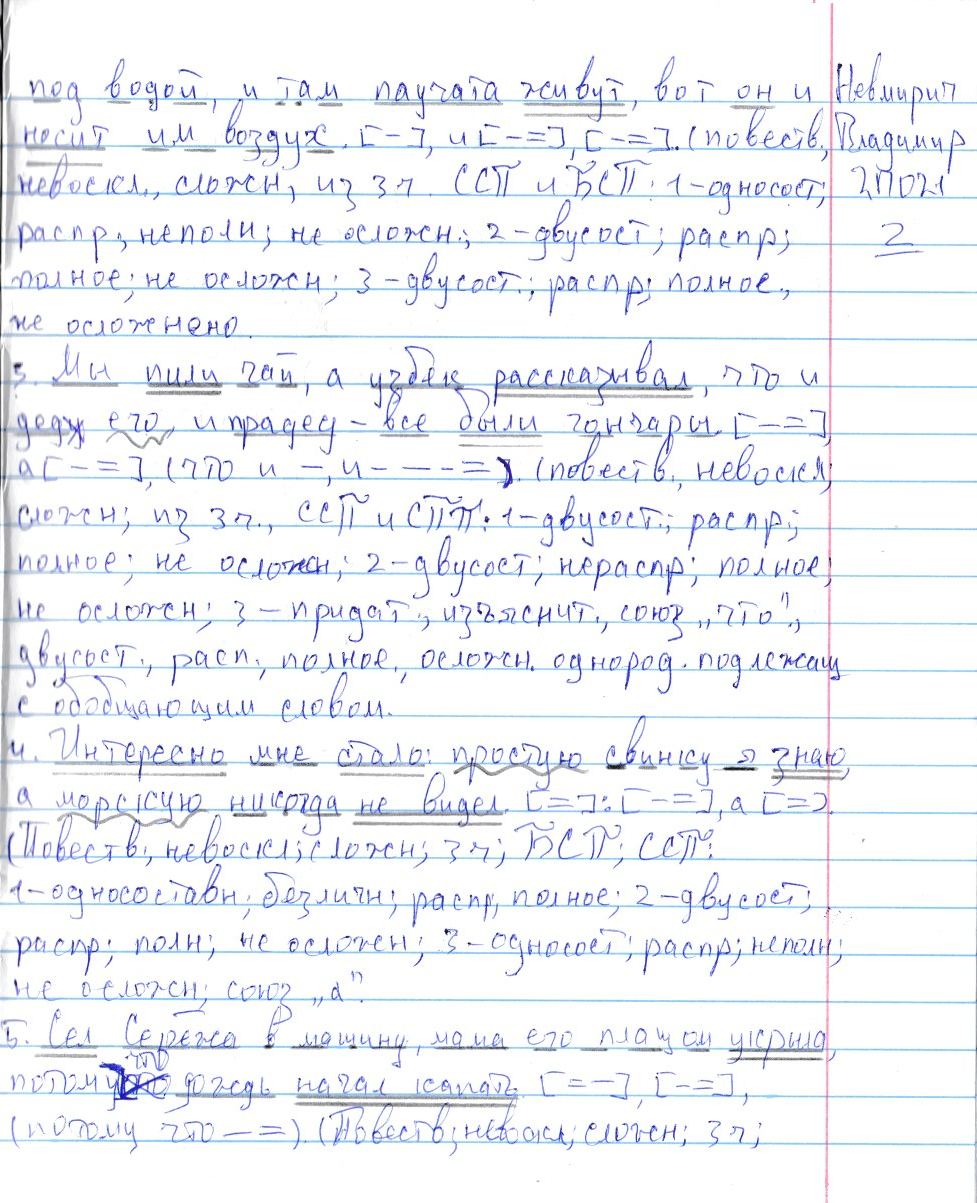 под водой, и там паучата живут, вот он и
носит им воздух. [-], и [-=], [-=]. (повеств.,
невоскл., сложн; из 3 ч. ССП и БСП: 1-односост;
распр.; неполн; не осложн.; 2-двусост; распр;
полное; не осложн; 3-двусост.; распр; полное.,
не осложнено.
3. Мы пили чай, а узбек рассказывал, что и
дед его, и прадед – все были гончары. [-=],
а [-=], (что и -, и - — - =). (повеств., невоскл;
сложн; из 3 ч., ССП и СПП: 1-двусост.; распр;
полное; не осложн; 2-двусост; нераспр; полное;
не осложн; 3-придат., изъяснит., союз „что";
двусост., расп., полное, осложн. однород. подлежащ
с обобщающим словом.
4. Интересно мне стало: простую свинку я знаю,
а морскую никогда не видел. [=]: [-=], а [=].
(Повеств; невоскл; сложн; 3 ч; БСП; ССП:
1-односоставн; безличн; распр, полное; 2-двусост;
распр; полн; не осложн; 3-односост; распр; неполн;
не осложн; союз „а".
5. Сел Сережа в машину, мама его плащом укрыла,
потому что дождь начал капать. [=-], [-=],
(потому что -=). (Повеств; невоскл; сложн; 3 ч;
Невмирич
Владимир
2П021
2